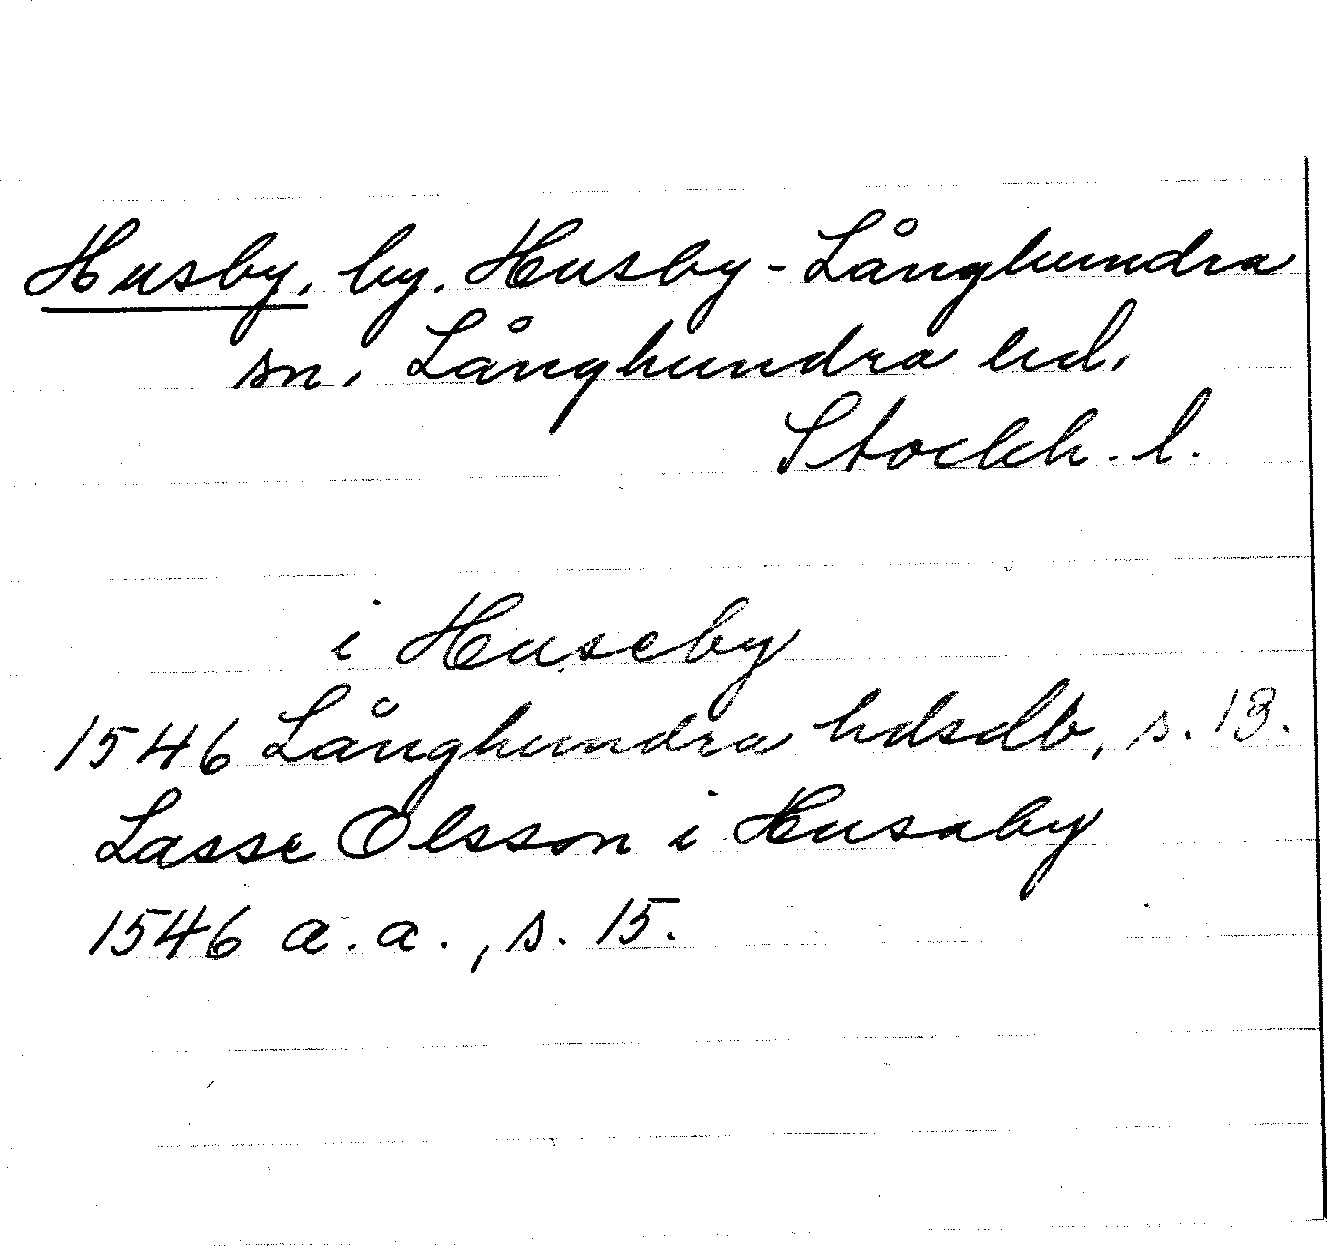 Husby, by, Husby-Långhundra
sn, Långhundra hd,
Stockh. l.
i Huseby
1546 Långhundra hdsdb, s. 13.
Lasse Olsson i Husaby
1546 a.a., s. 15.